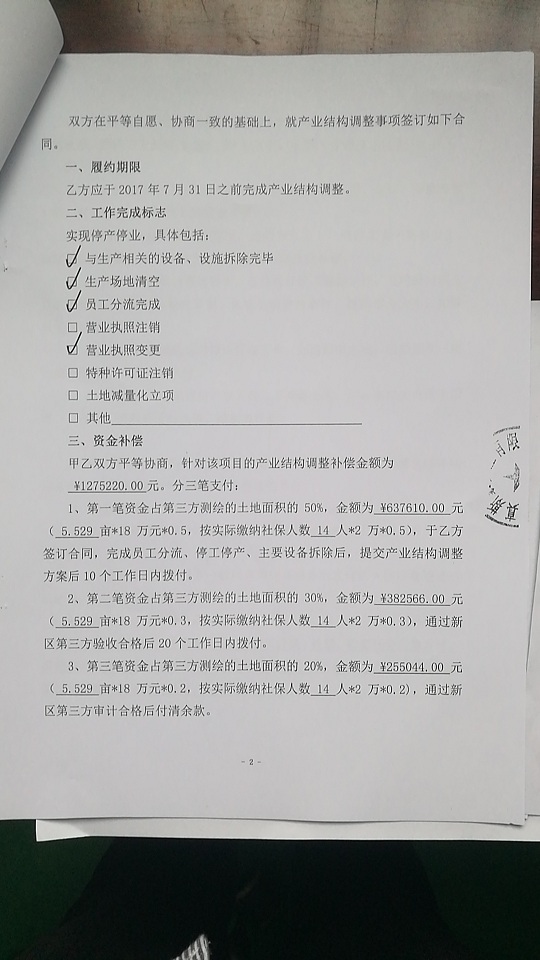 双方在平等自愿、协商一致的基础上，就产业结构调整事项签订如下合
同。
一、履约期限
乙方应于 2017 年 7 月 31 日之前完成产业结构调整。
二、工作完成标志
实现停产停业，具体包括：
☑ 与生产相关的设备、设施拆除完毕
☑ 生产场地清空
☑ 员工分流完成
□ 营业执照注销
☑ 营业执照变更
□ 特种许可证注销
□ 土地减量化立项
□ 其他
三、资金补偿
甲乙双方平等协商，针对该项目的产业结构调整补偿金额为
¥1275220.00 元。分三笔支付：
1、第一笔资金占第三方测绘的土地面积的 50%，金额为 ¥637610.00 元
（ 5.529 亩*18 万元*0.5，按实际缴纳社保人数 14 人*2 万*0.5），于乙方
签订合同，完成员工分流、停工停产、主要设备拆除后，提交产业结构调整
方案后 10 个工作日内拨付。
2、第二笔资金占第三方测绘的土地面积的 30%，金额为 ¥382566.00 元
（ 5.529 亩*18 万元*0.3，按实际缴纳社保人数 14 人*2 万*0.3），通过新
区第三方验收合格后 20 个工作日内拨付。
3、第三笔资金占第三方测绘的土地面积的 20%，金额为 ¥255044.00 元
（ 5.529 亩*18 万元*0.2，按实际缴纳社保人数 14 人*2 万*0.2），通过新
区第三方审计合格后付清余款。
- 2 -